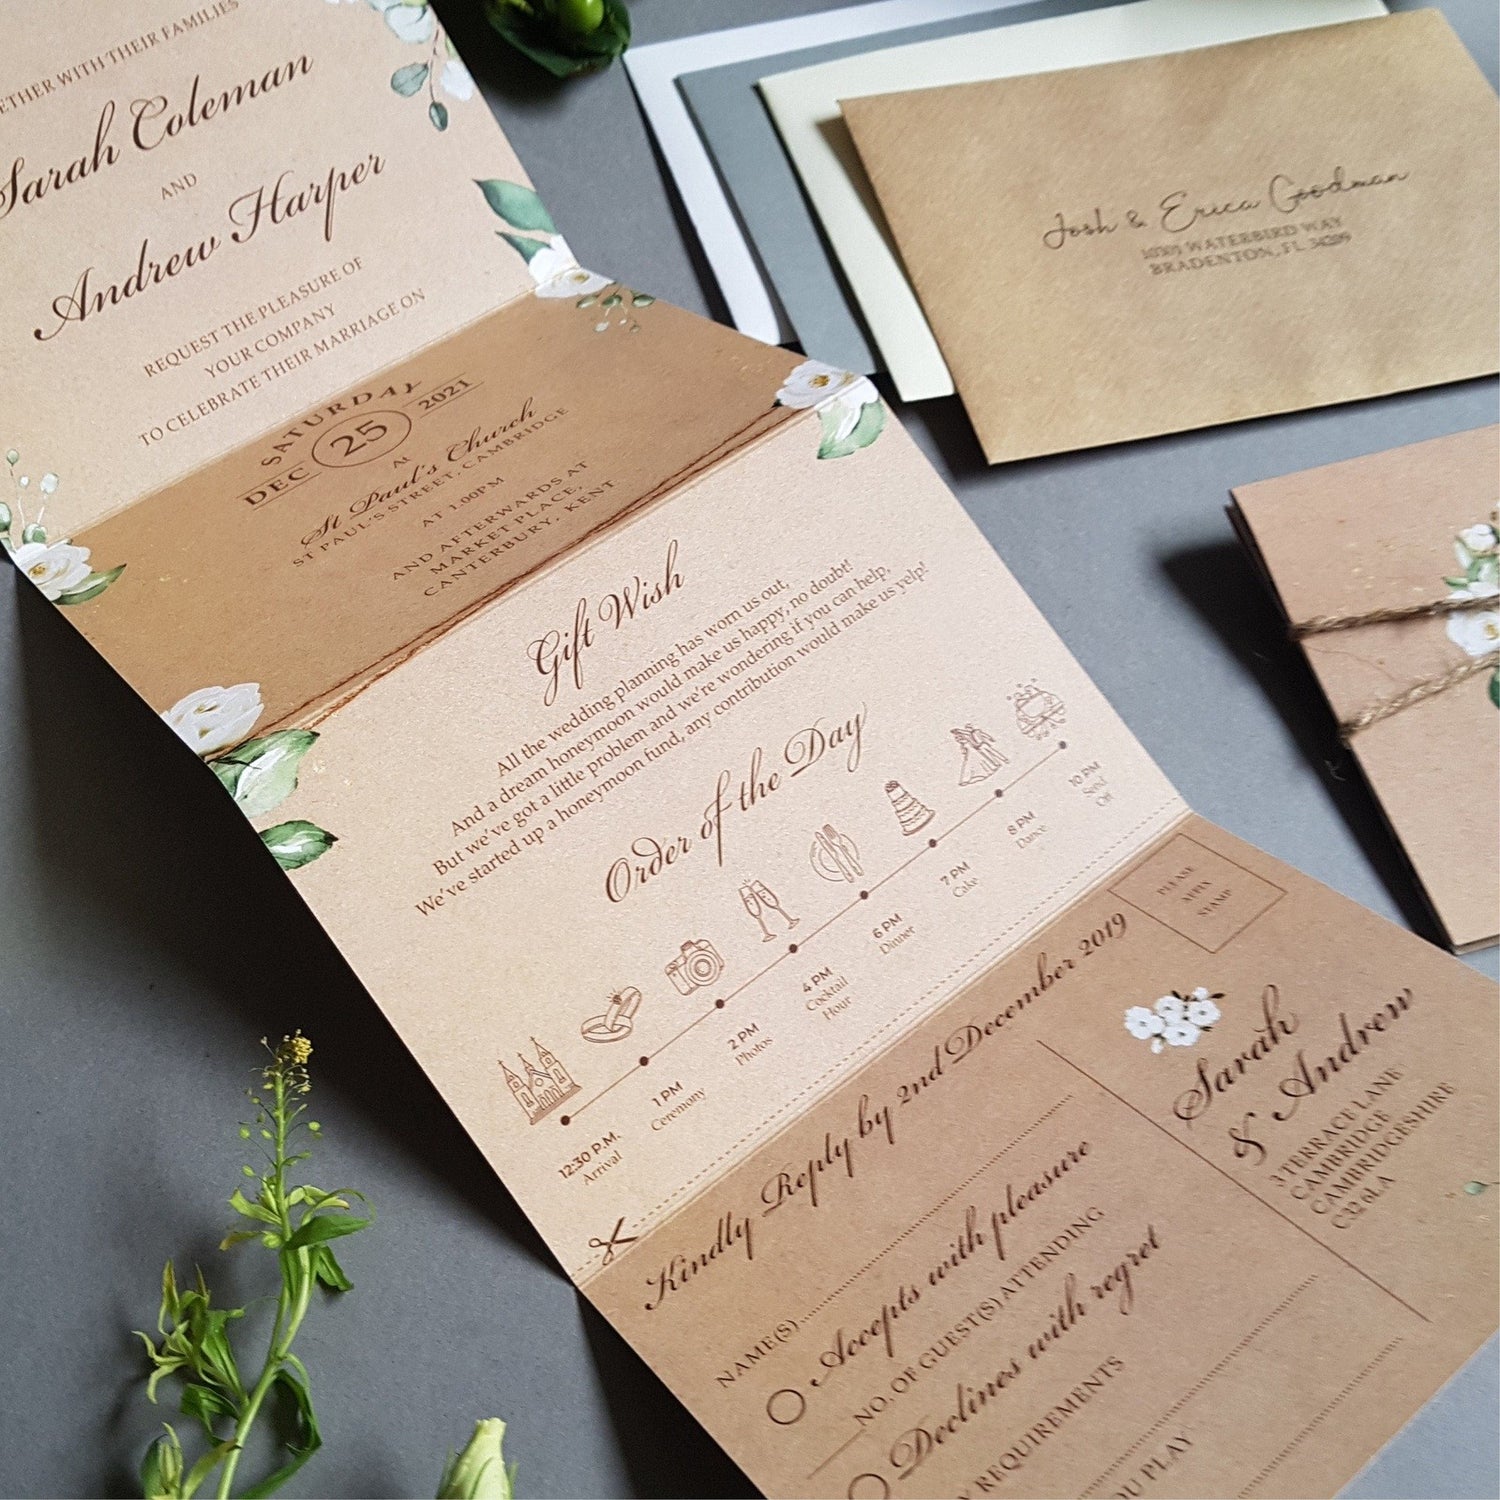 TOGETHER WITH THEIR FAMILIES
Sarah Coleman
AND
Andrew Harper
REQUEST THE PLEASURE OF
YOUR COMPANY
TO CELEBRATE THEIR MARRIAGE ON
SATURDAY
DEC 25 2021
At
St Paul's Church
ST PAUL'S STREET, CAMBRIDGE
AT 1.00PM
AND AFTERWARDS AT
MARKET PLACE,
CANTERBURY, KENT
Gift Wish
All the wedding planning has worn us out,
And a dream honeymoon would make us happy, no doubt!
But we've got a little problem and we're wondering if you can help,
We've started up a honeymoon fund, any contribution would make us yelp!
Order of the Day
12:30 P.M.
Arrival
1 PM
Ceremony
2 PM
Photos
4 PM
Cocktail
Hour
6 PM
Dinner
7 PM
Cake
8 PM
Dance
10 PM
Send
Off
Kindly Reply by 2nd December 2019
NAME(S)
Accepts with pleasure
NO. OF GUEST(S) ATTENDING
Declines with regret
REQUIREMENTS
PLAY
PLEASE
AFFIX
STAMP
Sarah
& Andrew
3 TERRACE LANE
CAMBRIDGE
CAMBRIDGESHIRE
C32 6LA
Josh & Erica Goodman
WATERBIRD WAY
BRADENTON, FL 34209